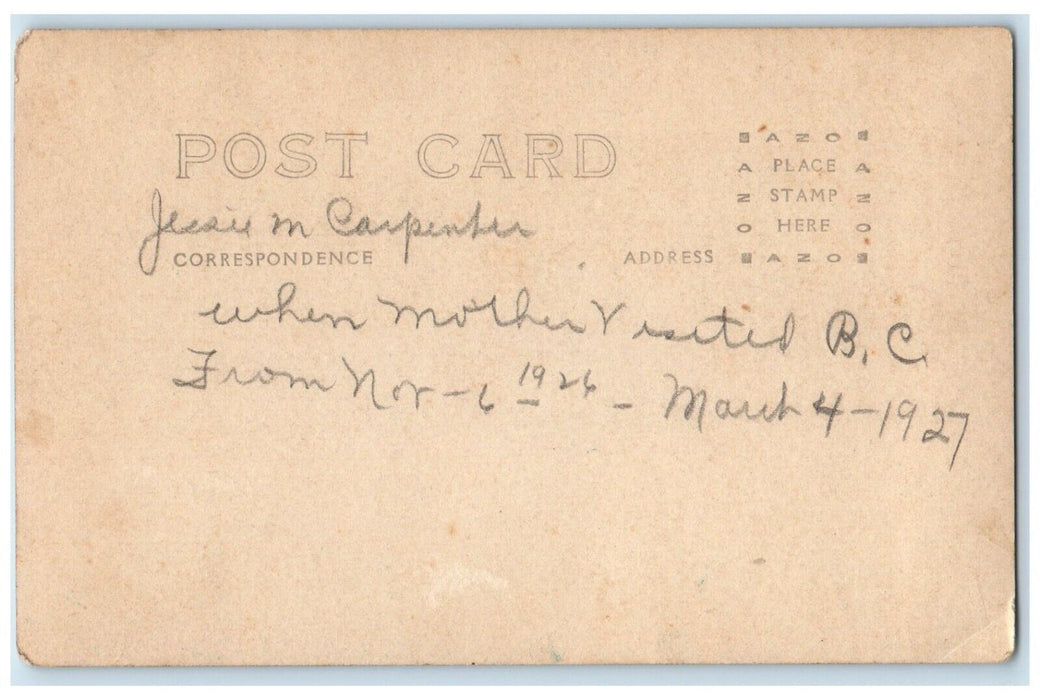 POST CARD
AZO
A PLACE A
Jessie M Carpenter
Z STAMP Z
O HERE O
CORRESPONDENCE ADDRESS
AZO
when Mother Visited B.C.
From Nov-6 1926 - March 4-1927